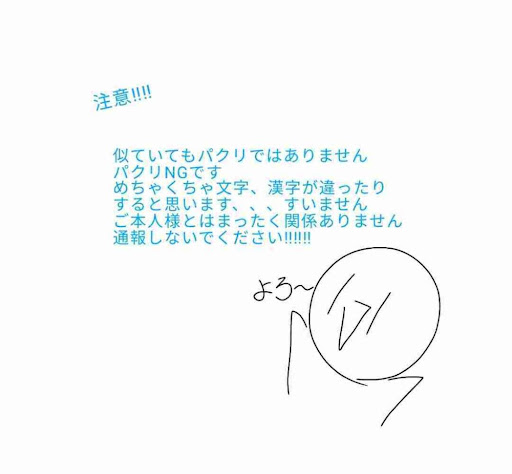 注意!!!!
似ていてもパクリではありません
パクリNGです
めちゃくちゃ文字、漢字が違ったり
すると思います、、、すいません
ご本人様とはまったく関係ありません
通報しないでください!!!!!!
よろ～